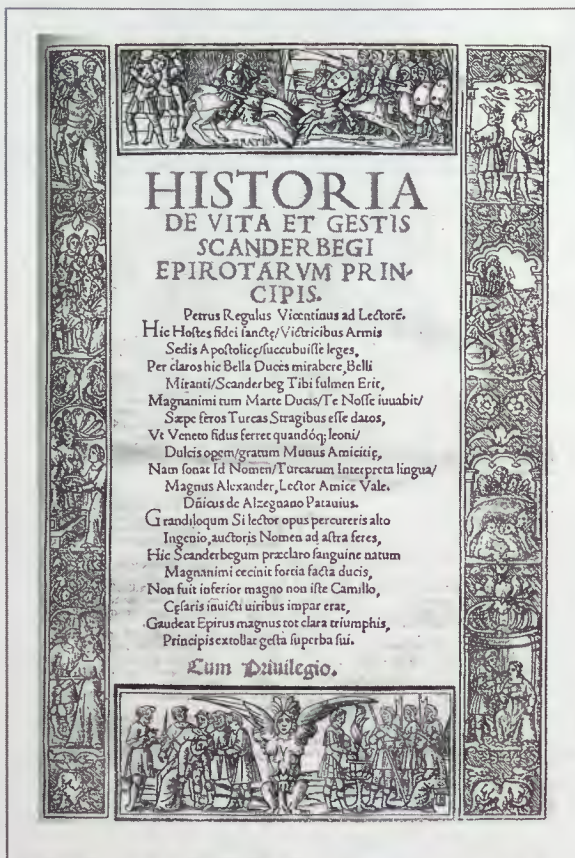 GRATIEN
HISTORIA
DE VITA ET GESTIS
SCANDERBEGI
EPIROTARVM PRIN-
CIPIS.
Petrus Regulus Vicentinus ad Lectorē.
Hic Hostes fidei sanctę/Victricibus Armis
Sedis Apostolicę/succubuisse leges,
Per claros hic Bella Duces mirabere, Belli
Miranti/Scanderbeg Tibi fulmen Erit,
Magnanimi tum Marte Ducis/Te Nosse iuuabit/
Sæpe feros Turcas Stragibus esse datos,
Vt Veneto fidus ferret quandóq; leoni/
Dulcis opem/gratum Munus Amicitię,
Nam sonat Id Nomen/Turcarum Interpreta lingua/
Magnus Alexander, Lector Amice Vale.
Dñicus de Alzegnano Patauius.
Grandiloquum Si lector opus percureris alto
Ingenio, auctoris Nomen ad astra feres,
Hic Scanderbegum præclaro sanguine natum
Magnanimi cecinit fortia facta ducis,
Non fuit inferior magno non iste Camillo,
Cęsaris inuicti uiribus impar erat,
Gaudeat Epirus magnus tot clara triumphis,
Principis extollat gesta superba sui.
Cum Priuilegio.